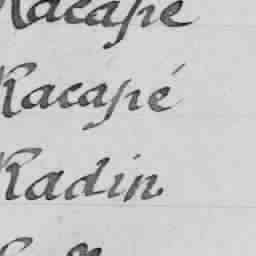 Racapé
Racapé
Radin